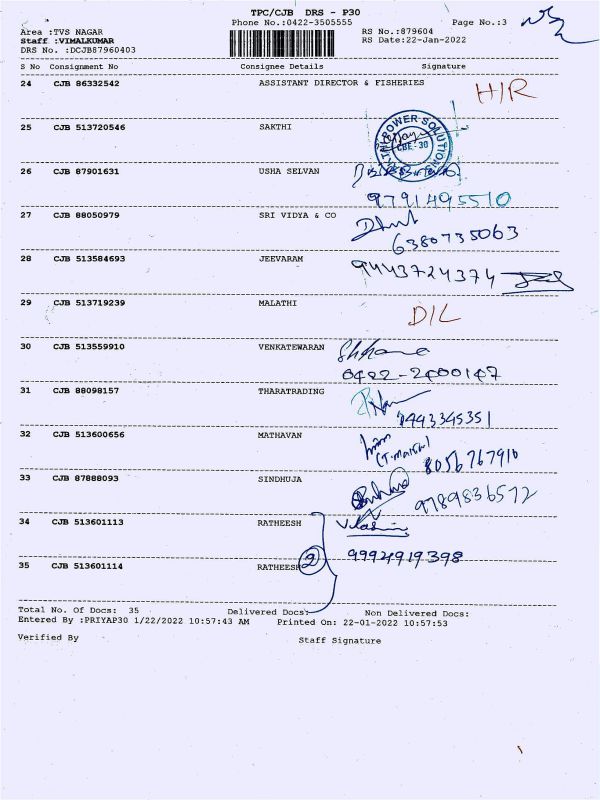 TPC/CJB DRS - P30
Phone No.:0422-3505555 Page No.:3
Area :TVS NAGAR RS No.:879604
Staff :VIMALKUMAR RS Date:22-Jan-2022
DRS No. :DCJB87960403
S No Consignment No Consignee Details Signature
24 CJB 86332542 ASSISTANT DIRECTOR & FISHERIES
H/R
25 CJB 513720546 SAKTHI
POWER SOLUTIONS
CBE-30
26 CJB 87901631 USHA SELVAN
9791495510
27 CJB 88050979 SRI VIDYA & CO
6380735063
28 CJB 513584693 JEEVARAM
9443724374
29 CJB 513719239 MALATHI
D/L
30 CJB 513559910 VENKATEWARAN
0422-2400147
31 CJB 88098157 THARATRADING
9443345351
32 CJB 513600656 MATHAVAN
8056767910
33 CJB 87888093 SINDHUJA
9789836572
34 CJB 513601113 RATHEESH
2 9994919398
35 CJB 513601114 RATHEESH
Total No. Of Docs: 35 Delivered Docs: Non Delivered Docs:
Entered By :PRIYAP30 1/22/2022 10:57:43 AM Printed On: 22-01-2022 10:57:53
Verified By Staff Signature